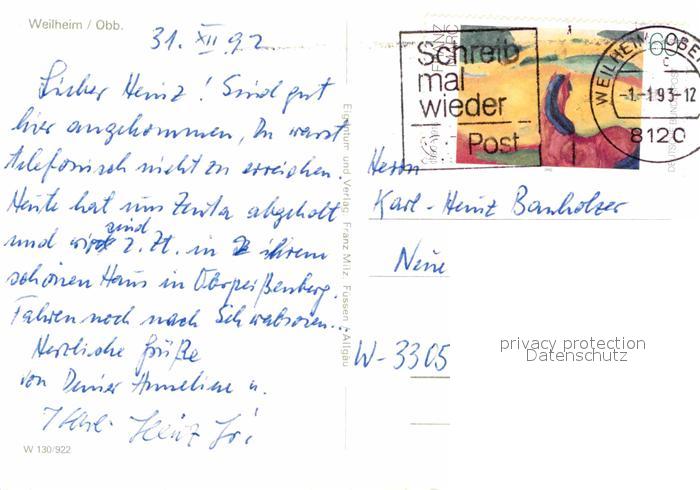 Weilheim / Obb.
31. XII 92
Lieber Heinz! Sind gut
hier angekommen, Du warst
telefonisch nicht zu erreichen.
Heute hat uns Zenta abgeholt
und wir sind z. Zt. in ihrem
schönen Haus in Oberpeißenberg.
Fahren noch nach Schwabsoien...
Herzliche Grüße
von Deiner Anneliese u.
Karl-Heinz
W 130/922
Eigentum und Verlag Franz Milz, Füssen / Allgäu
Schreib
mal
wieder
Post
FRANZ
MARC
60
DEUTSCHE BUNDESPOST
WEILHEIM, OBERB
-1.-1.93-12
8120
Herrn
Karl-Heinz Banholzer
Neue
W-3305
privacy protection
Datenschutz